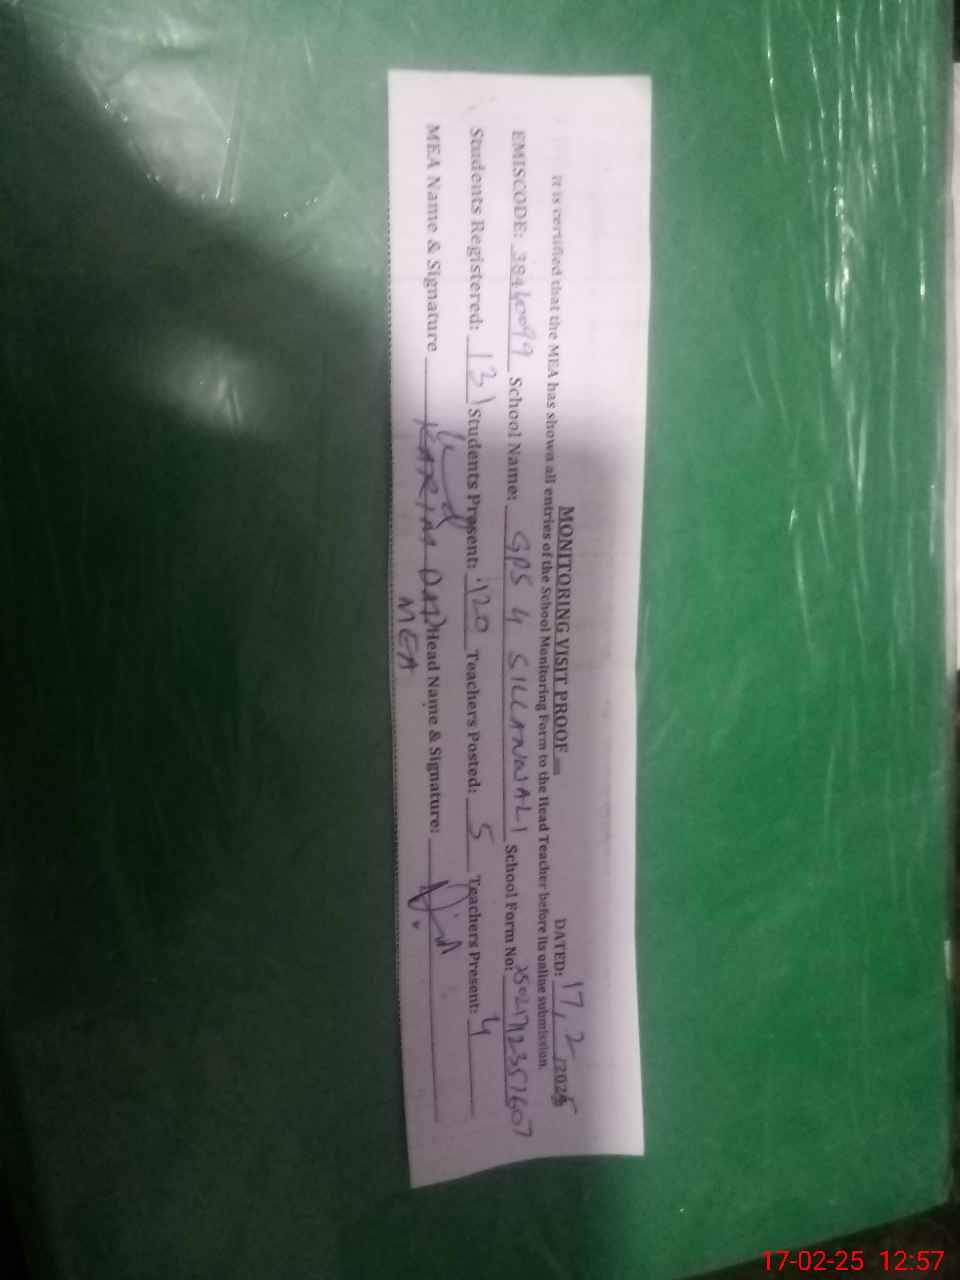 MONITORING VISIT PROOF
DATED: 17, 2 /2025
It is certified that the MEA has shown all entries of the School Monitoring Form to the Head Teacher before its online submission.
EMISCODE: 38440099 School Name: GPS 4 SILLANWALI School Form No: 25021712351607
Students Registered: 131 Students Present: 120 Teachers Posted: 5 Teachers Present: 4
MEA Name & Signature KARIM DAD Head Name & Signature:
MEA
17-02-25 12:57